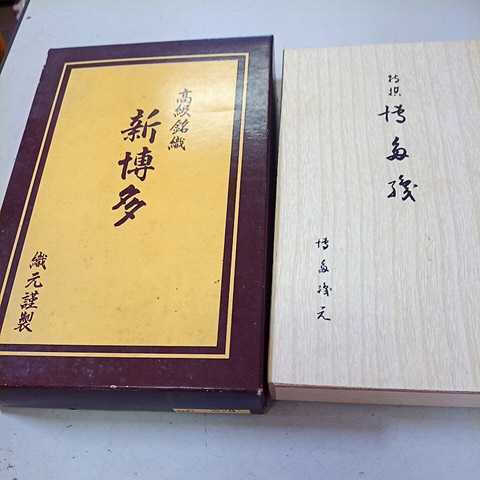 高級銘織
新博多
織元謹製
特撰
博多織
博多織元